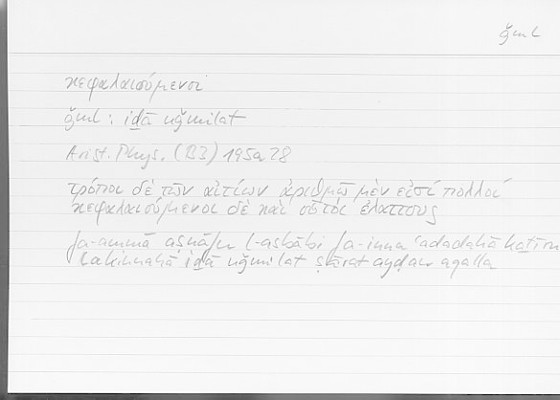 ǧml
κεφαλαιούμενοι
ǧml : iḏā uǧmilat
Arist. Phys. (B3) 195a28
τρόποι δὲ τῶν αἰτίων ἀριθμῷ μέν εἰσί πολλοί
κεφαλαιούμενοι δὲ καὶ οὗτοι ἐλάττους
fa-ammā aṣnāfu l-asbābi fa-inna ʿadadahā kaṯīrun
lākinnahā iḏā uǧmilat ṣārat ayḍan aqalla